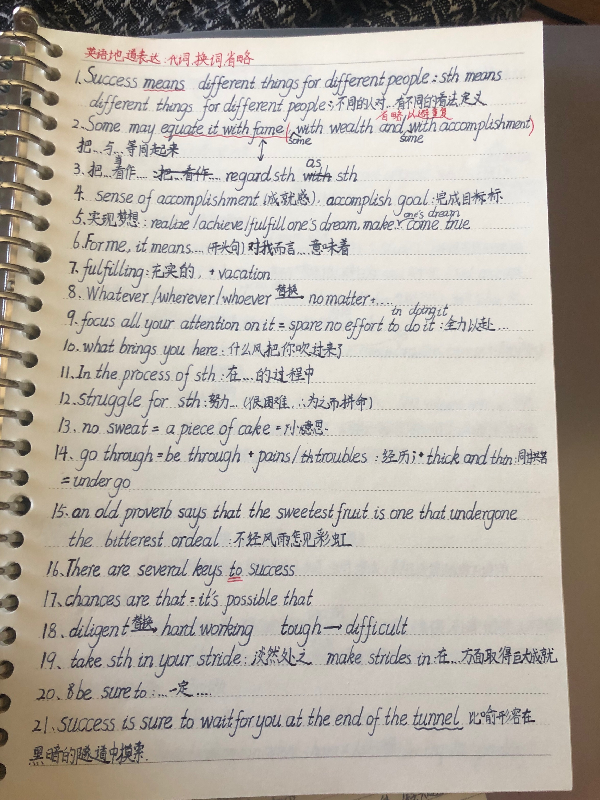 英语地道表达:代词,换词,省略
1.Success means different things for different people: sth means
different things for different people: 不同的人对…有不同的看法定义
省略,以避重复
2.Some may equate it with fame(, with wealth and, with accomplishment)
some some
把…与…等同起来
3. 把…看作… regard sth as sth
4. sense of accomplishment (成就感), accomplish goal:完成目标标
5.实现梦想: realize/achieve/fulfill one's dream, make one's dream come true
6.For me, it means… (开头句) 对我而言…意味着
7. fulfilling:充实的, + vacation
8. Whatever/wherever/whoever 替换 no matter+…
in doing it
9. focus all your attention on it = spare no effort to do it:全力以赴…
10. what brings you here:什么风把你吹过来了
11. In the process of sth:在…的过程中
12. struggle for sth:努力… (很困难,∴为之而拼命)
13. no sweat = a piece of cake = 小意思.
14. go through = be through + pains/troubles : 经历; thick and thin:同甘共苦
= undergo
15. an old proverb says that the sweetest fruit is one that undergone
the bitterest ordeal:不经风雨怎见彩虹
16.There are several keys to success
17.chances are that = it's possible that
18. diligent 替换→ hard working tough → difficult
19. take sth in your stride:淡然处之 make strides in:在…方面取得巨大成就
20. be sure to:…一定…
21. success is sure to wait for you at the end of the tunnel 比喻形容在
黑暗的隧道中摸索.